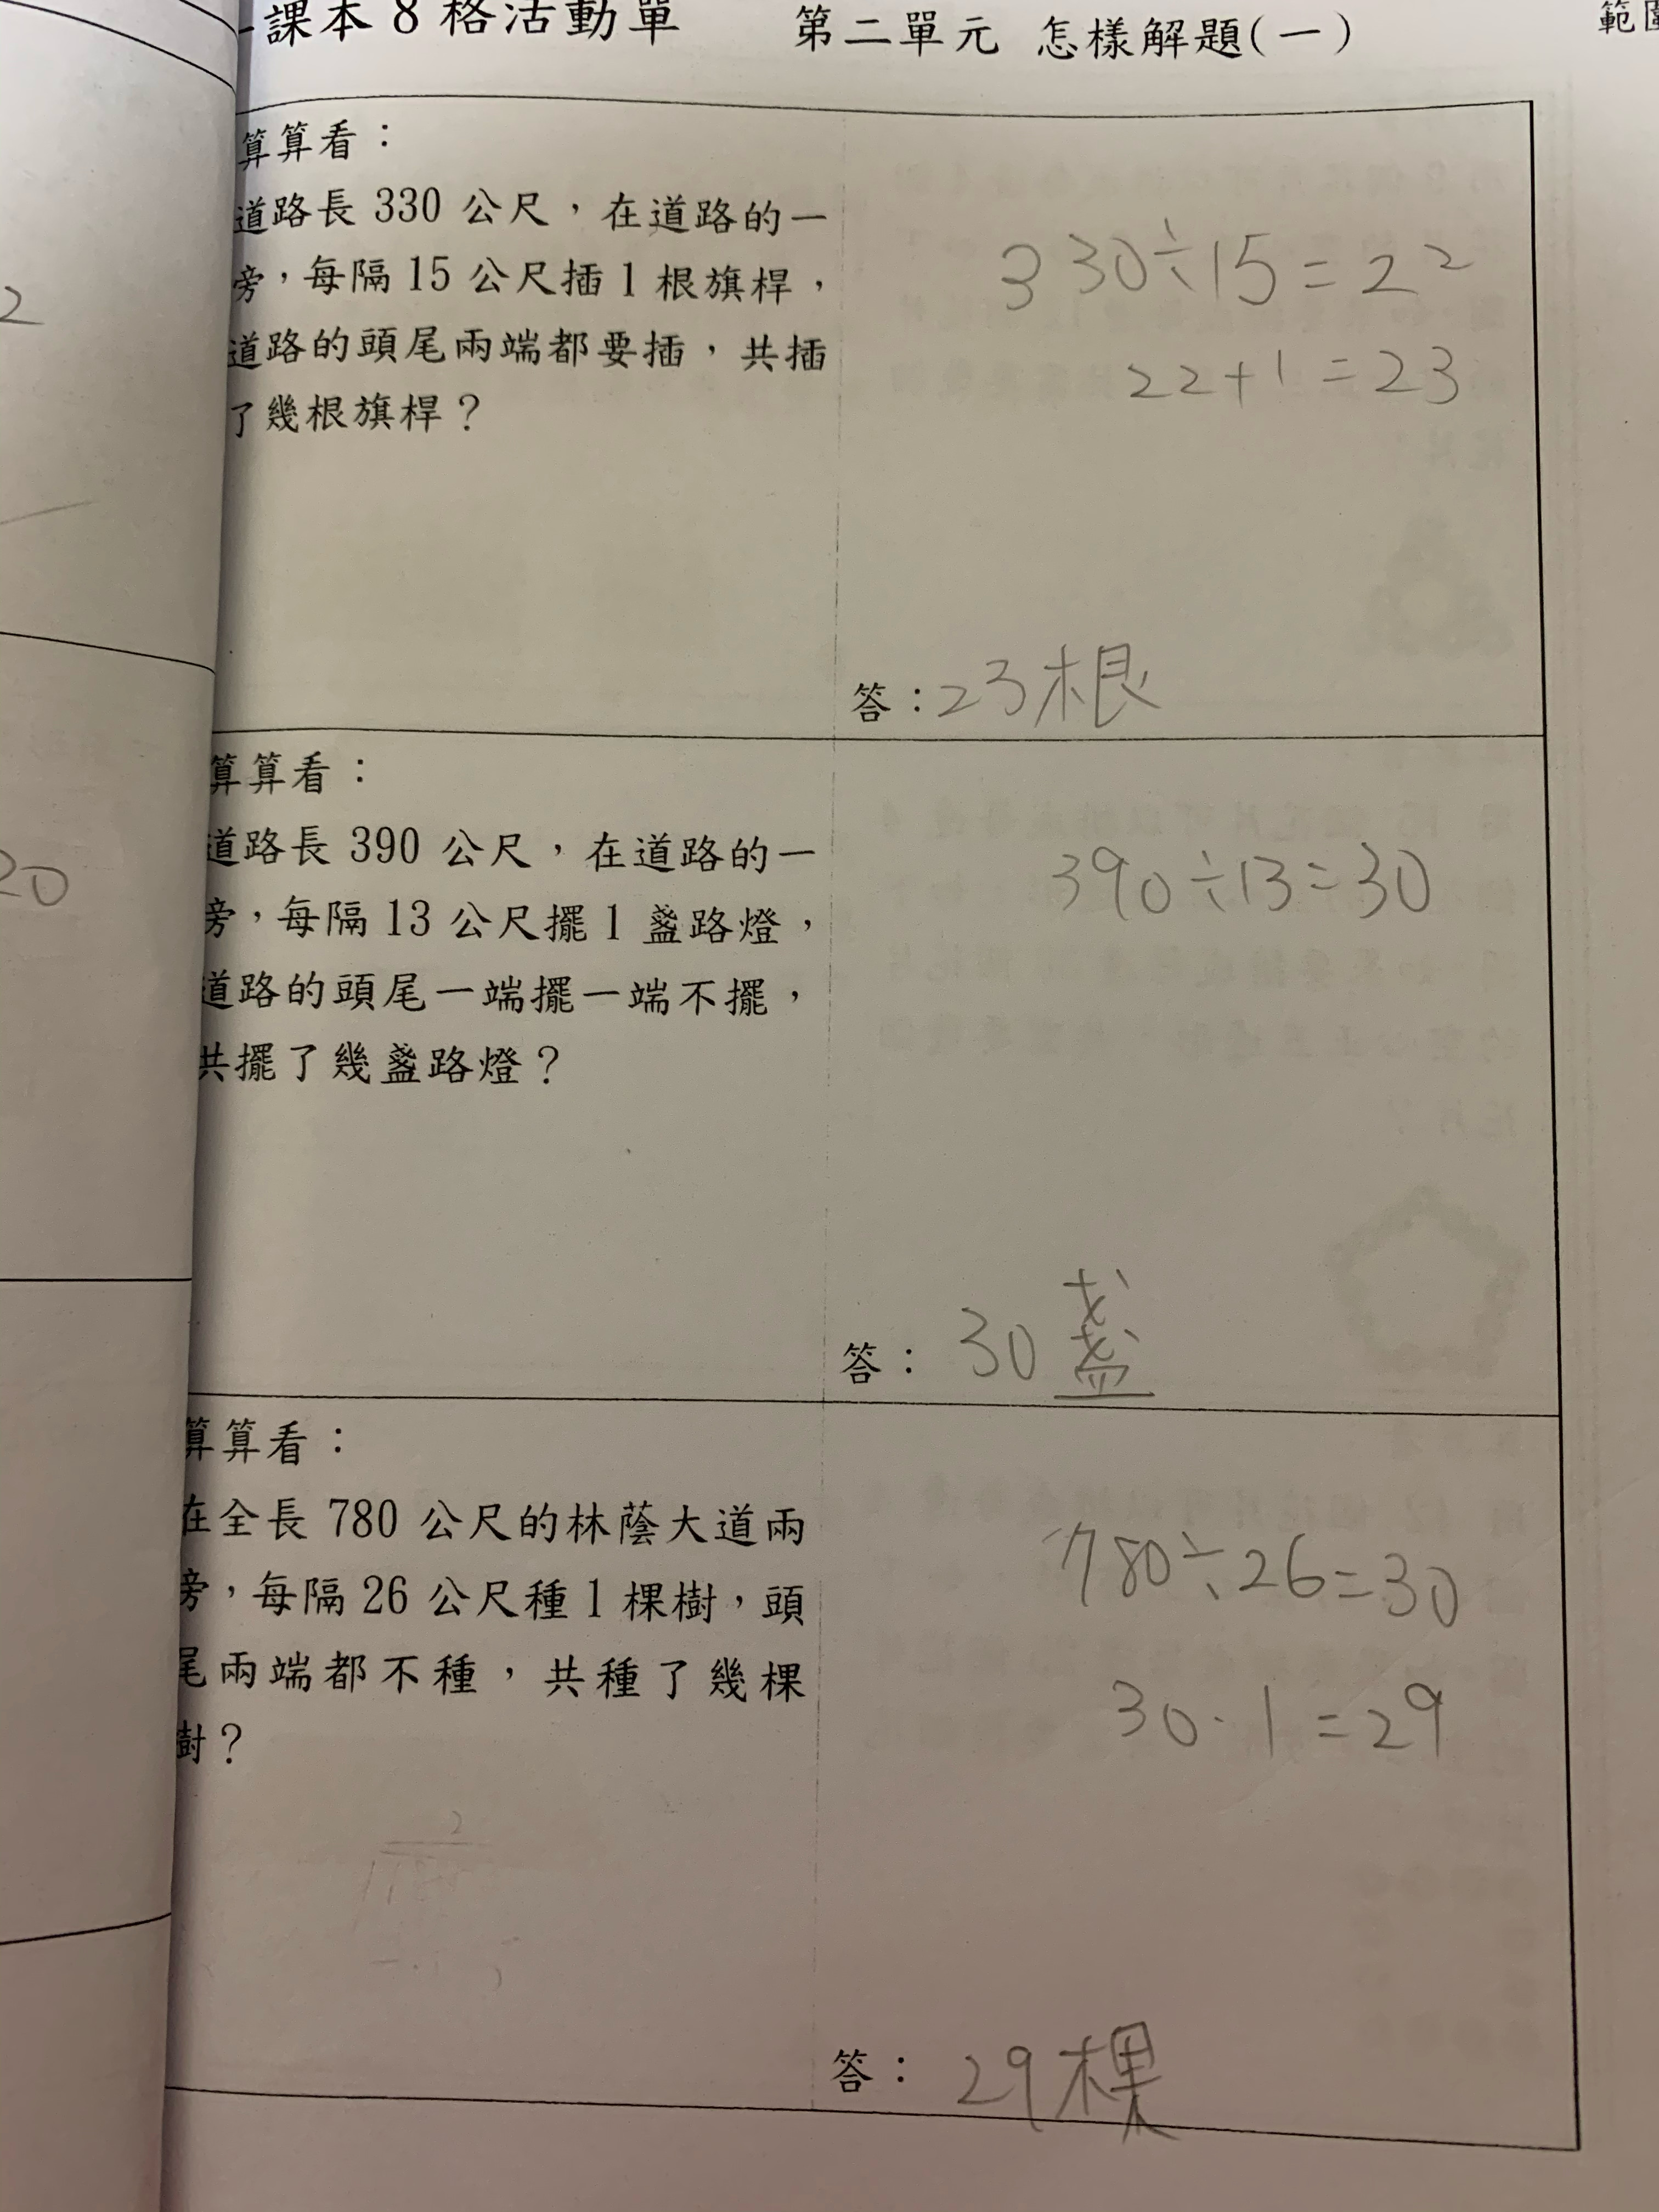 課本 8 格活動單 第二單元 怎樣解題(一) 範
算算看：
道路長 330 公尺，在道路的一
旁，每隔 15 公尺插 1 根旗桿，
道路的頭尾兩端都要插，共插
了幾根旗桿？
330÷15=22
22+1=23
答：23根
算算看：
道路長 390 公尺，在道路的一
旁，每隔 13 公尺擺 1 盞路燈，
道路的頭尾一端擺一端不擺，
共擺了幾盞路燈？
390÷13=30
答：30盞
算算看：
在全長 780 公尺的林蔭大道兩
旁，每隔 26 公尺種 1 棵樹，頭
尾兩端都不種，共種了幾棵
樹？
780÷26=30
30-1=29
答：29棵
2
20